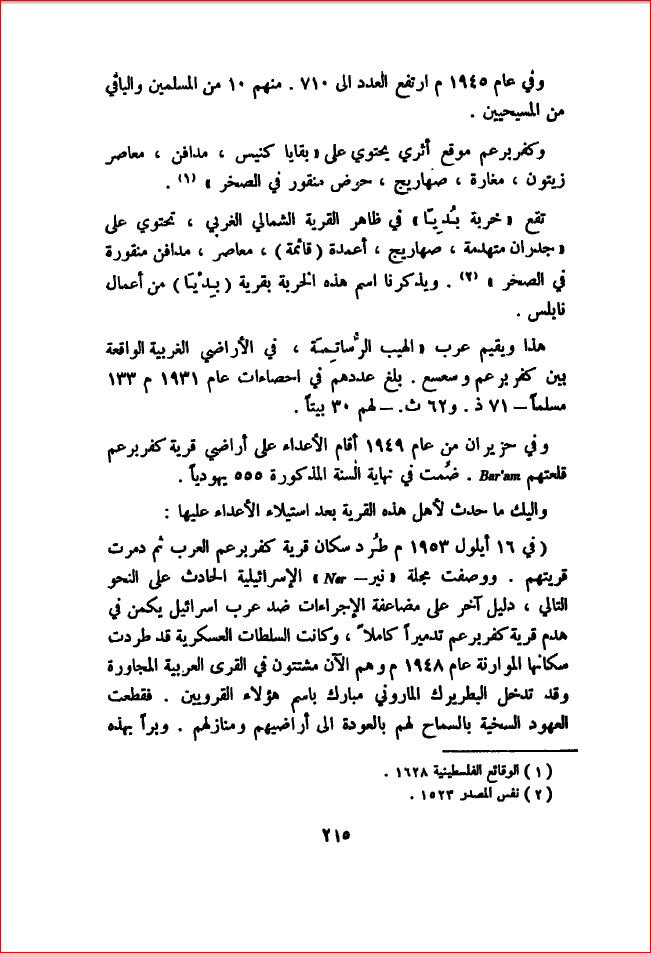 وفي عام ١٩٤٥ م ارتفع العدد الى ٧١٠ . منهم ١٠ من المسلمين والباقي
من المسيحيين .
وكفربرعم موقع أثري يحتوي على « بقايا كنيس ، مدافن ، معاصر
زيتون ، مغارة ، صهاريج ، حوض منقور في الصخر » (١) .
تقع « خربة بُدِيبَا » في ظاهر القرية الشمالي الغربي ، تحتوي على
« جدران متهدمة ، صهاريج ، أعمدة ( قائمة ) ، معاصر ، مدافن منقورة
في الصخر » (٢) . ويذكرنا اسم هذه الخربة بقرية ( بِدْيَا ) من أعمال
نابلس .
هذا ويقيم عرب « الهيب الرُّساتِمِة ، في الأراضي الغربية الواقعة
بين كفربرعم وسعسع . بلغ عددهم في احصاءات عام ١٩٣١ م ١٣٣
مسلماً – ٧١ ذ. و٦٢ ث. – لهم ٣٠ بيتاً .
وفي حزيران من عام ١٩٤٩ أقام الأعداء على أراضي قرية كفربرعم
قلعتهم Bar'am . ضُمت في نهاية السنة المذكورة ٥٥٥ يهودياً .
واليك ما حدث لأهل هذه القرية بعد استيلاء الأعداء عليها :
( في ١٦ أيلول ١٩٥٣ م طُرد سكان قرية كفربرعم العرب ثم دمرت
قريتهم . ووصفت مجلة « نير – Ner » الإسرائيلية الحادث على النحو
التالي ، دليل آخر على مضاعفة الإجراءات ضد عرب اسرائيل يكمن في
هدم قرية كفربرعم تدميراً كاملاً ، وكانت السلطات العسكرية قد طردت
سكانها الموارنة عام ١٩٤٨ م وهم الآن مشتتون في القرى العربية المجاورة
وقد تدخل البطريرك الماروني مبارك باسم هؤلاء القرويين . فقطعت
العهود السخية بالسماح لهم بالعودة الى أراضيهم ومنازلهم . وبراً بهذه
( ١ ) الوقائع الفلسطينية ١٦٢٨ .
( ٢ ) نفس المصدر ١٥٢٣ .
٢١٥